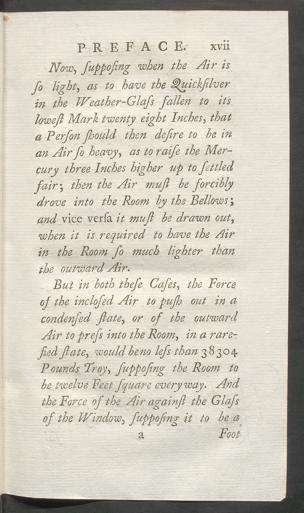 PREFACE. xvii
Now, ſuppoſing when the Air is
ſo light, as to have the Quickſilver
in the Weather-Glaſs fallen to its
loweſt Mark twenty eight Inches, that
a Perſon ſhould then deſire to be in
an Air ſo heavy, as to raiſe the Mer-
cury three Inches higher up to ſettled
fair; then the Air muſt be forcibly
drove into the Room by the Bellows;
and vice verſa it muſt be drawn out,
when it is required to have the Air
in the Room ſo much lighter than
the outward Air.
But in both theſe Caſes, the Force
of the incloſed Air to puſh out in a
condenſed ſtate, or of the outward
Air to preſs into the Room, in a rare-
fied ſtate, would be no leſs than 38304
Pounds Troy, ſuppoſing the Room to
be twelve Feet ſquare every way. And
the Force of the Air againſt the Glaſs
of the Window, ſuppoſing it to be a
a Foot